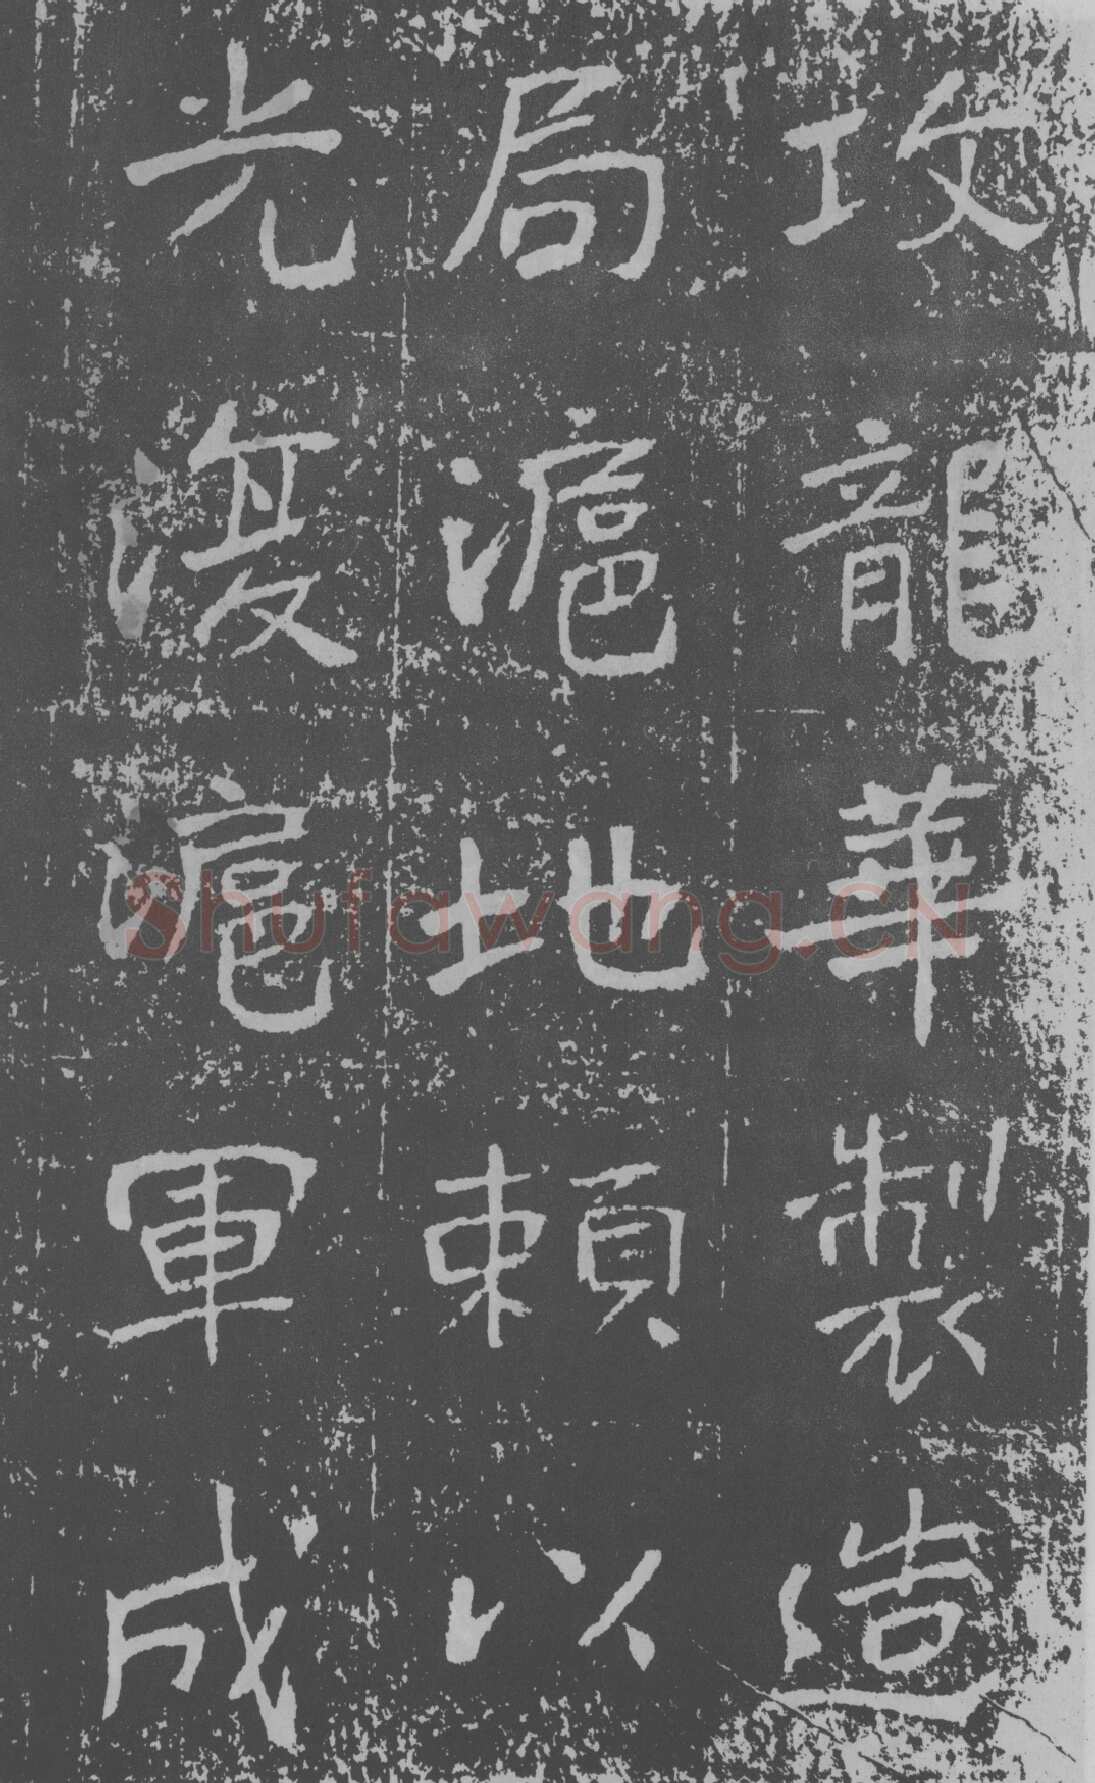 攻龍華製造
局滬地賴以
光澓滬軍成
Shufawang.CN